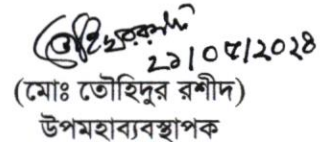 ২১/০৫/২০২৪
(মোঃ তৌহিদুর রশীদ)
উপমহাব্যবস্থাপক